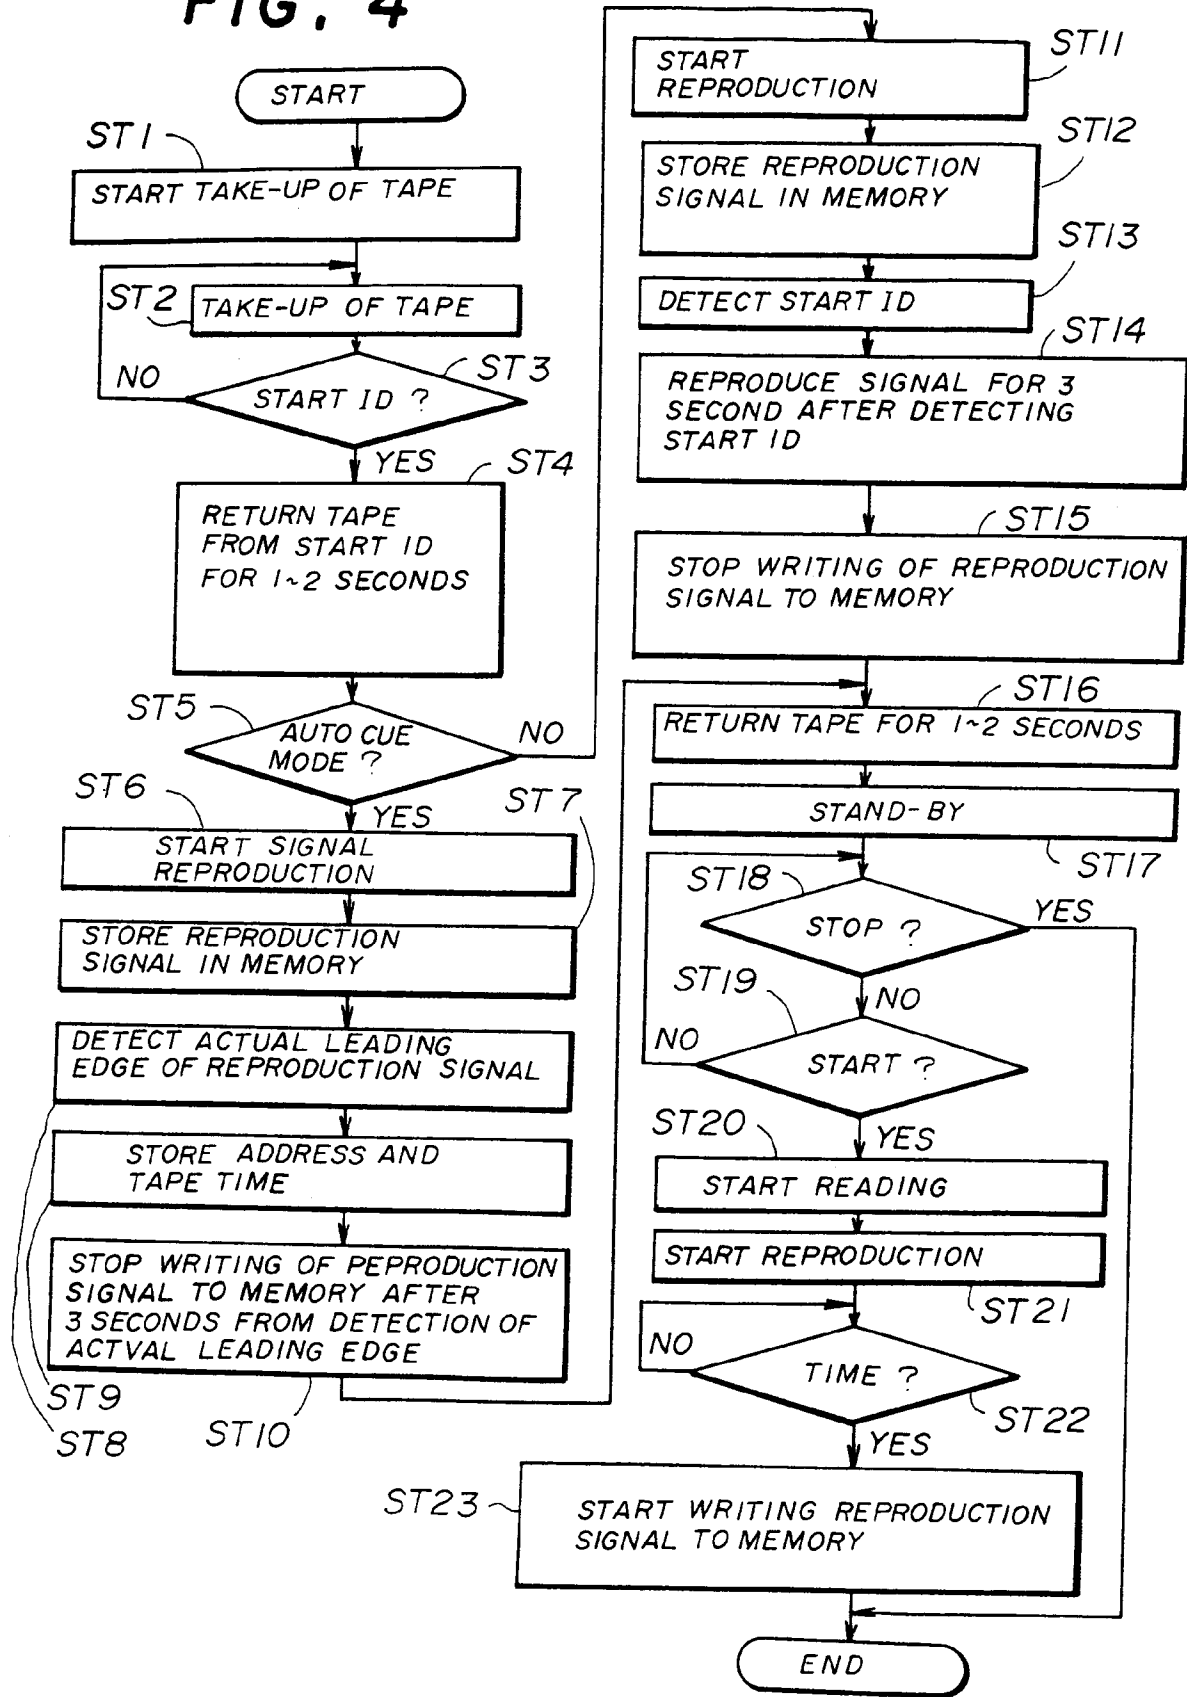 FIG. 4
START
ST1
START TAKE-UP OF TAPE
ST2
TAKE-UP OF TAPE
ST3
START ID ?
NO
YES
ST4
RETURN TAPE
FROM START ID
FOR 1~2 SECONDS
ST5
AUTO CUE
MODE ?
NO
YES
ST6
START SIGNAL
REPRODUCTION
ST7
STORE REPRODUCTION
SIGNAL IN MEMORY
DETECT ACTUAL LEADING
EDGE OF REPRODUCTION SIGNAL
STORE ADDRESS AND
TAPE TIME
STOP WRITING OF PEPRODUCTION
SIGNAL TO MEMORY AFTER
3 SECONDS FROM DETECTION OF
ACTVAL LEADING EDGE
ST9
ST8
ST10
ST11
START
REPRODUCTION
ST12
STORE REPRODUCTION
SIGNAL IN MEMORY
ST13
DETECT START ID
ST14
REPRODUCE SIGNAL FOR 3
SECOND AFTER DETECTING
START ID
ST15
STOP WRITING OF REPRODUCTION
SIGNAL TO MEMORY
ST16
RETURN TAPE FOR 1~2 SECONDS
STAND-BY
ST17
ST18
STOP ?
YES
NO
ST19
START ?
NO
YES
ST20
START READING
START REPRODUCTION
ST21
NO
TIME ?
ST22
YES
ST23
START WRITING REPRODUCTION
SIGNAL TO MEMORY
END